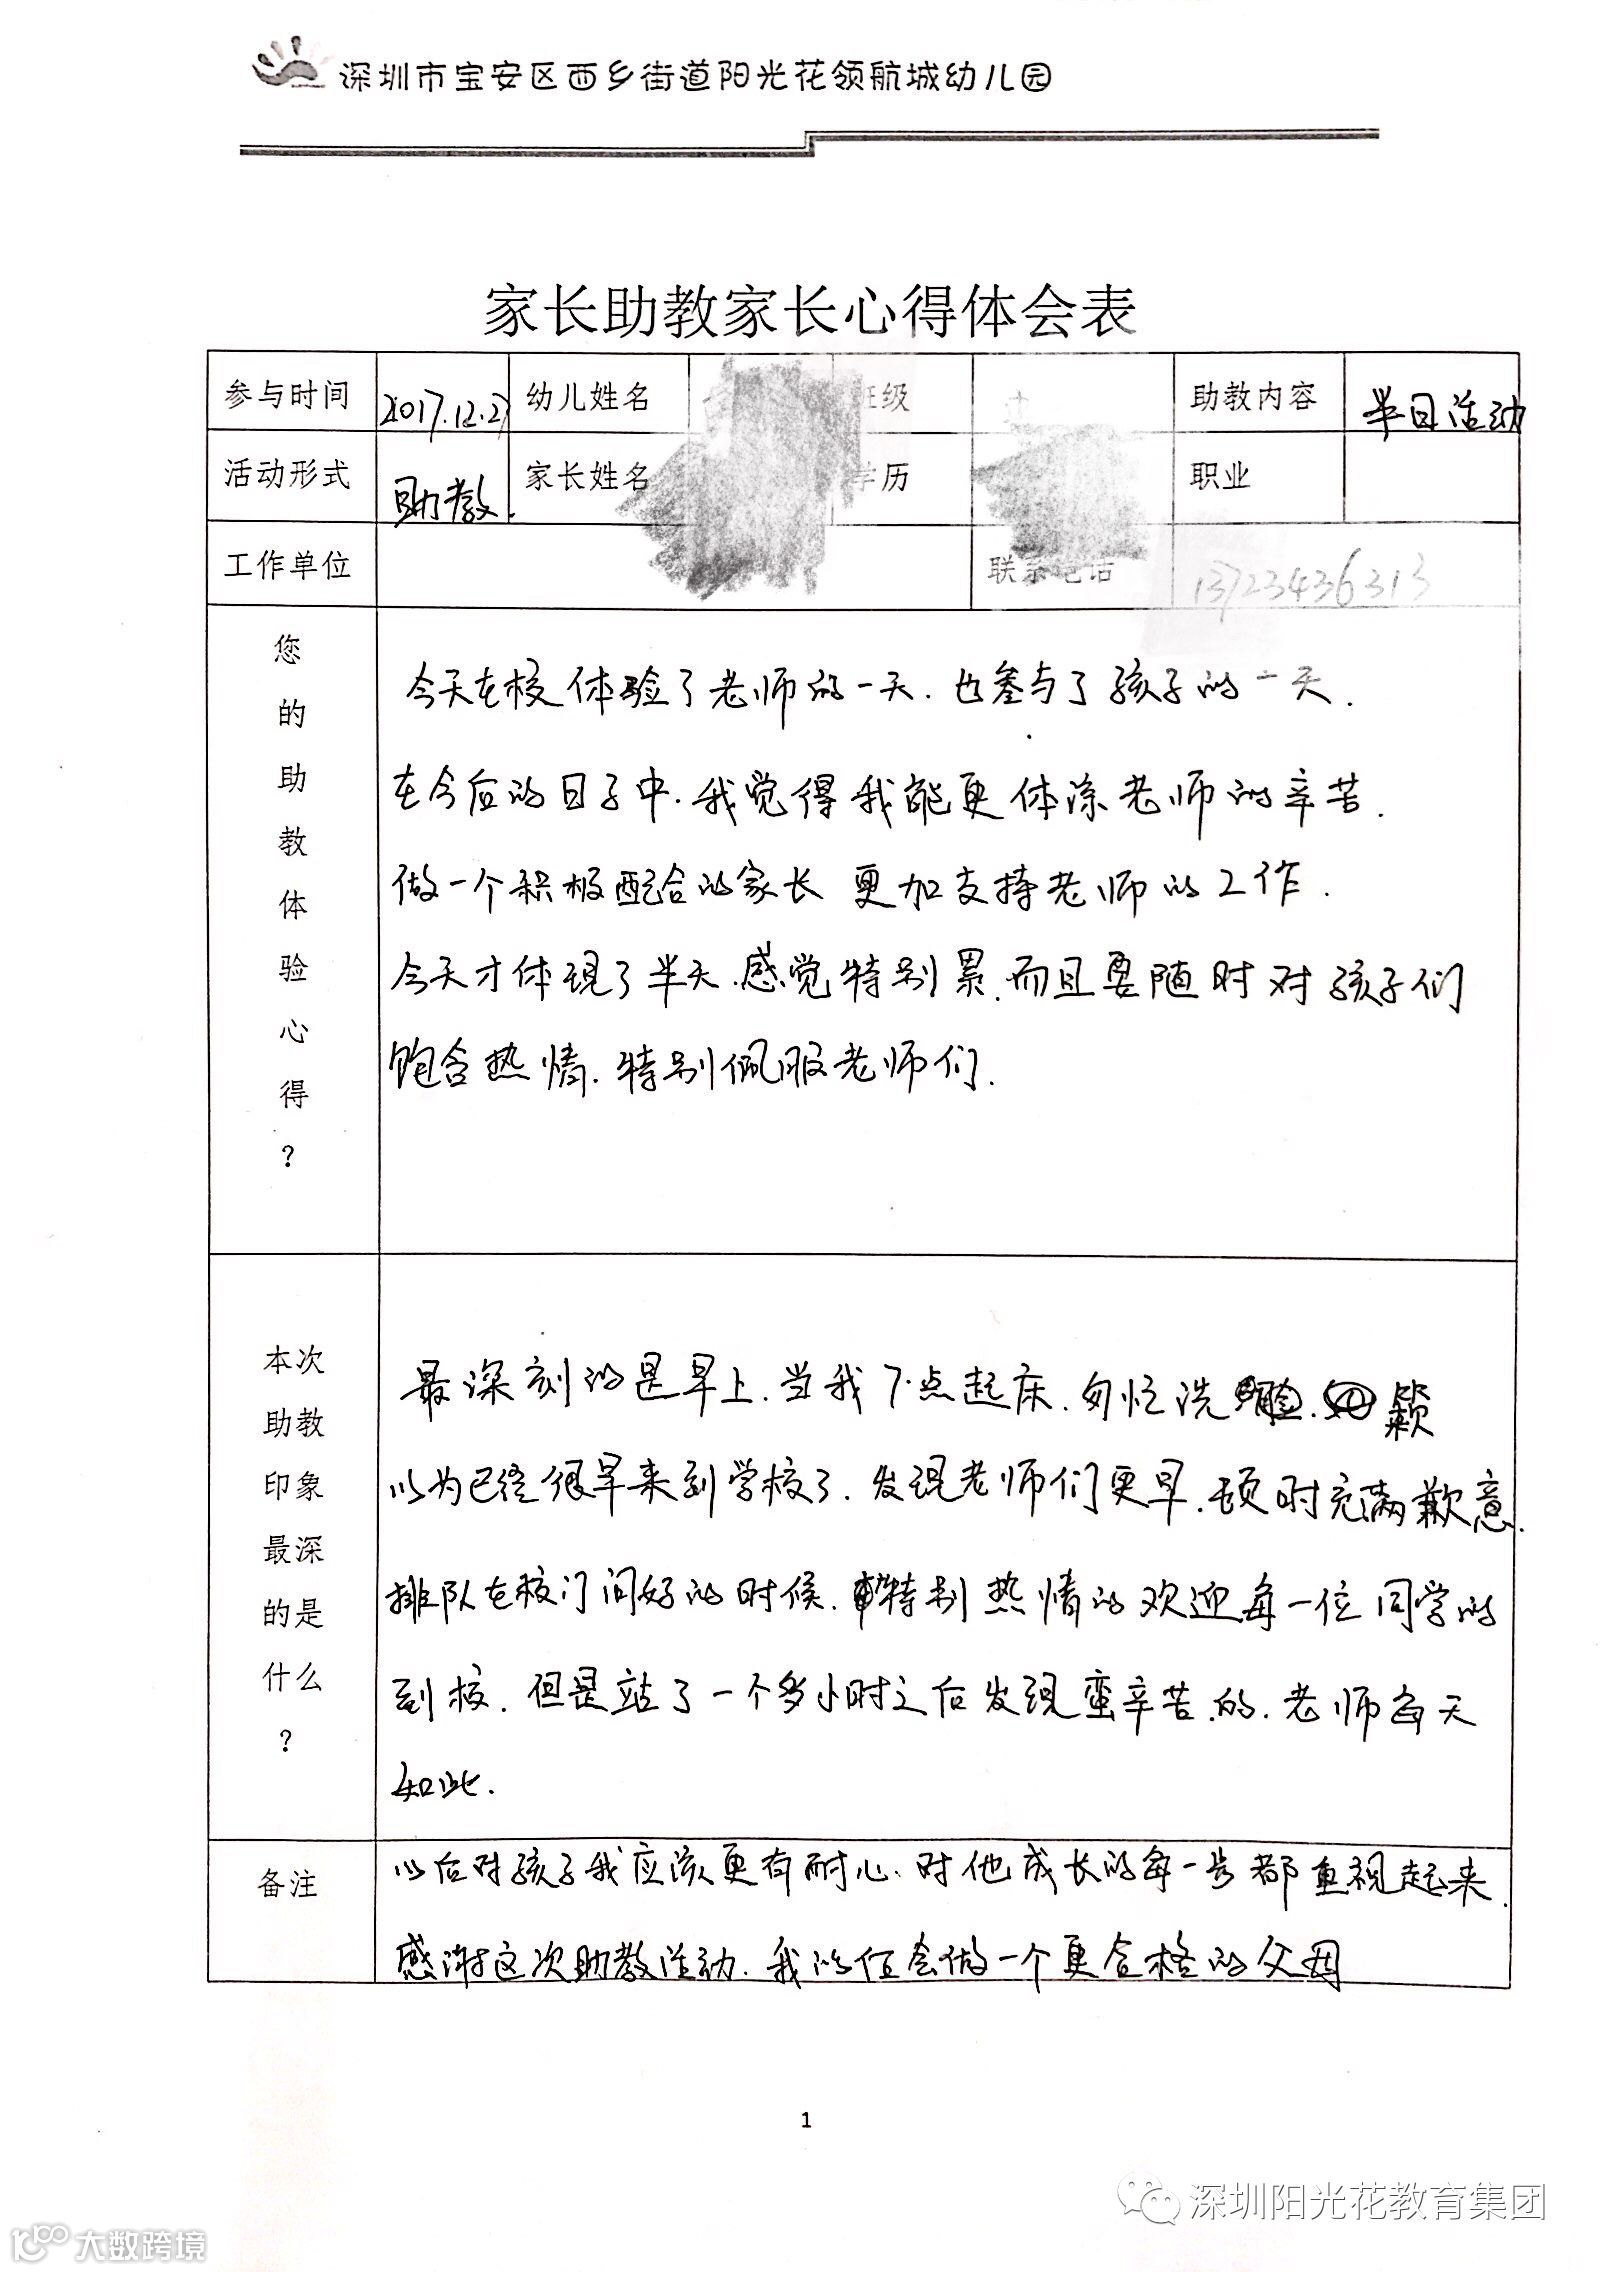 深圳市宝安区西乡街道阳光花领航城幼儿园
家长助教家长心得体会表
参与时间 2017.12.27 幼儿姓名 班级 助教内容 半日活动
活动形式 助教. 家长姓名 学历 职业
工作单位 联系电话 13723436313
您的助教体验心得?
今天在校体验了老师的一天.也参与了孩子的一天.
在今后的日子中.我觉得我能更体涂老师的辛苦.
做一个积极配合的家长 更加支持老师的工作.
今天才体现了半天.感觉特别累.而且要随时对孩子们
饱含热情.特别佩服老师们.
本次助教印象最深的是什么?
最深刻的是早上.当我7点起床.匆忙洗脸.
以为已经很早来到学校了.发现老师们更早.顿时充满歉意.
排队在校门问好的时候.特别热情的欢迎每一位同学的
到校.但是站了一个多小时之后发现蛮辛苦的.老师每天
如此.
备注
以后对孩子我应该更有耐心.对他成长的每一步都重视起来.
感谢这次助教活动.我的任会做一个更合格的父母
1
深圳阳光花教育集团
大数跨境